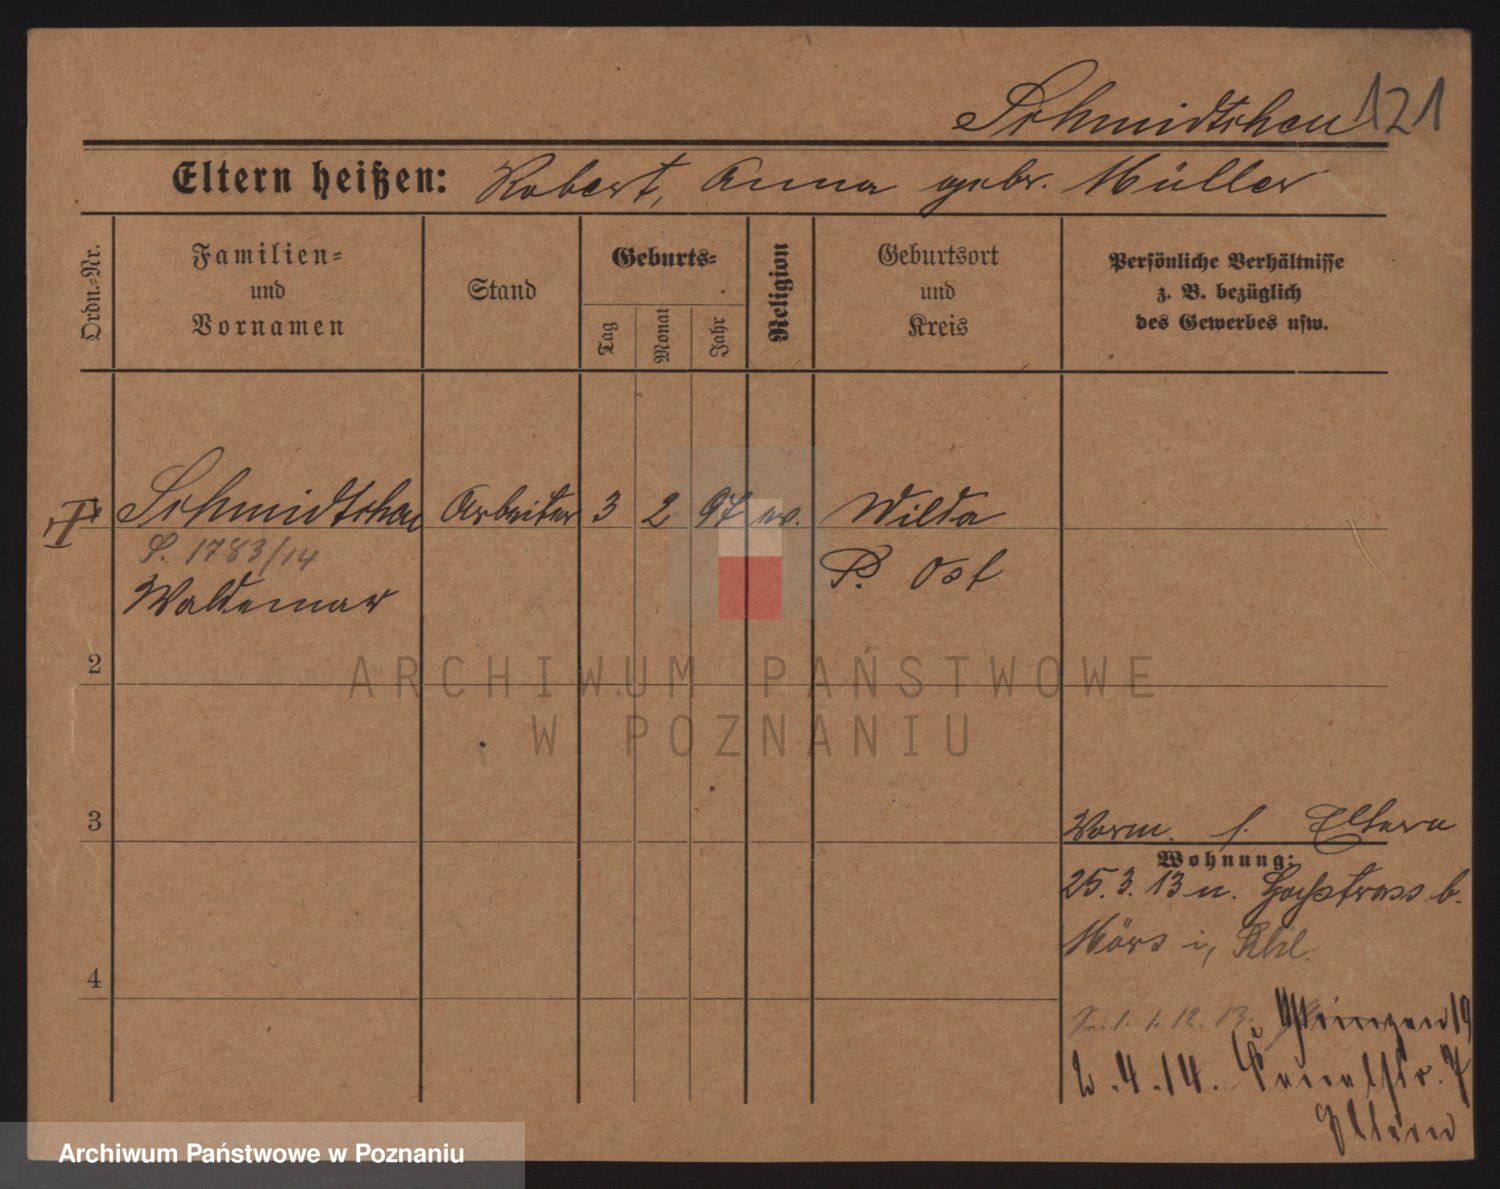 Schmidtchen 121
Eltern heißen: Robert, Anna gebr. Müller
Ordn.-Nr.
Familien-
und
Vornamen
Stand
Geburts-
Tag
Monat
Jahr
Religion
Geburtsort
und
Kreis
Persönliche Verhältnisse
z. B. bezüglich
des Gewerbes usw.
Schmidtchen Arbeiter 3 2 97 ev. Wilda
S. 1783/14
P. Ost
Waldemar
2
3
4
Vorm. s. Eltern
Wohnung:
25.3.13 n. Hochstrass b.
Mörs i, Rhl.
Seit 1.12.13. Prinzen 19
2.4.14. Kanalstr. 7
Eltern
ARCHIWUM PAŃSTWOWE
W POZNANIU
Archiwum Państwowe w Poznaniu